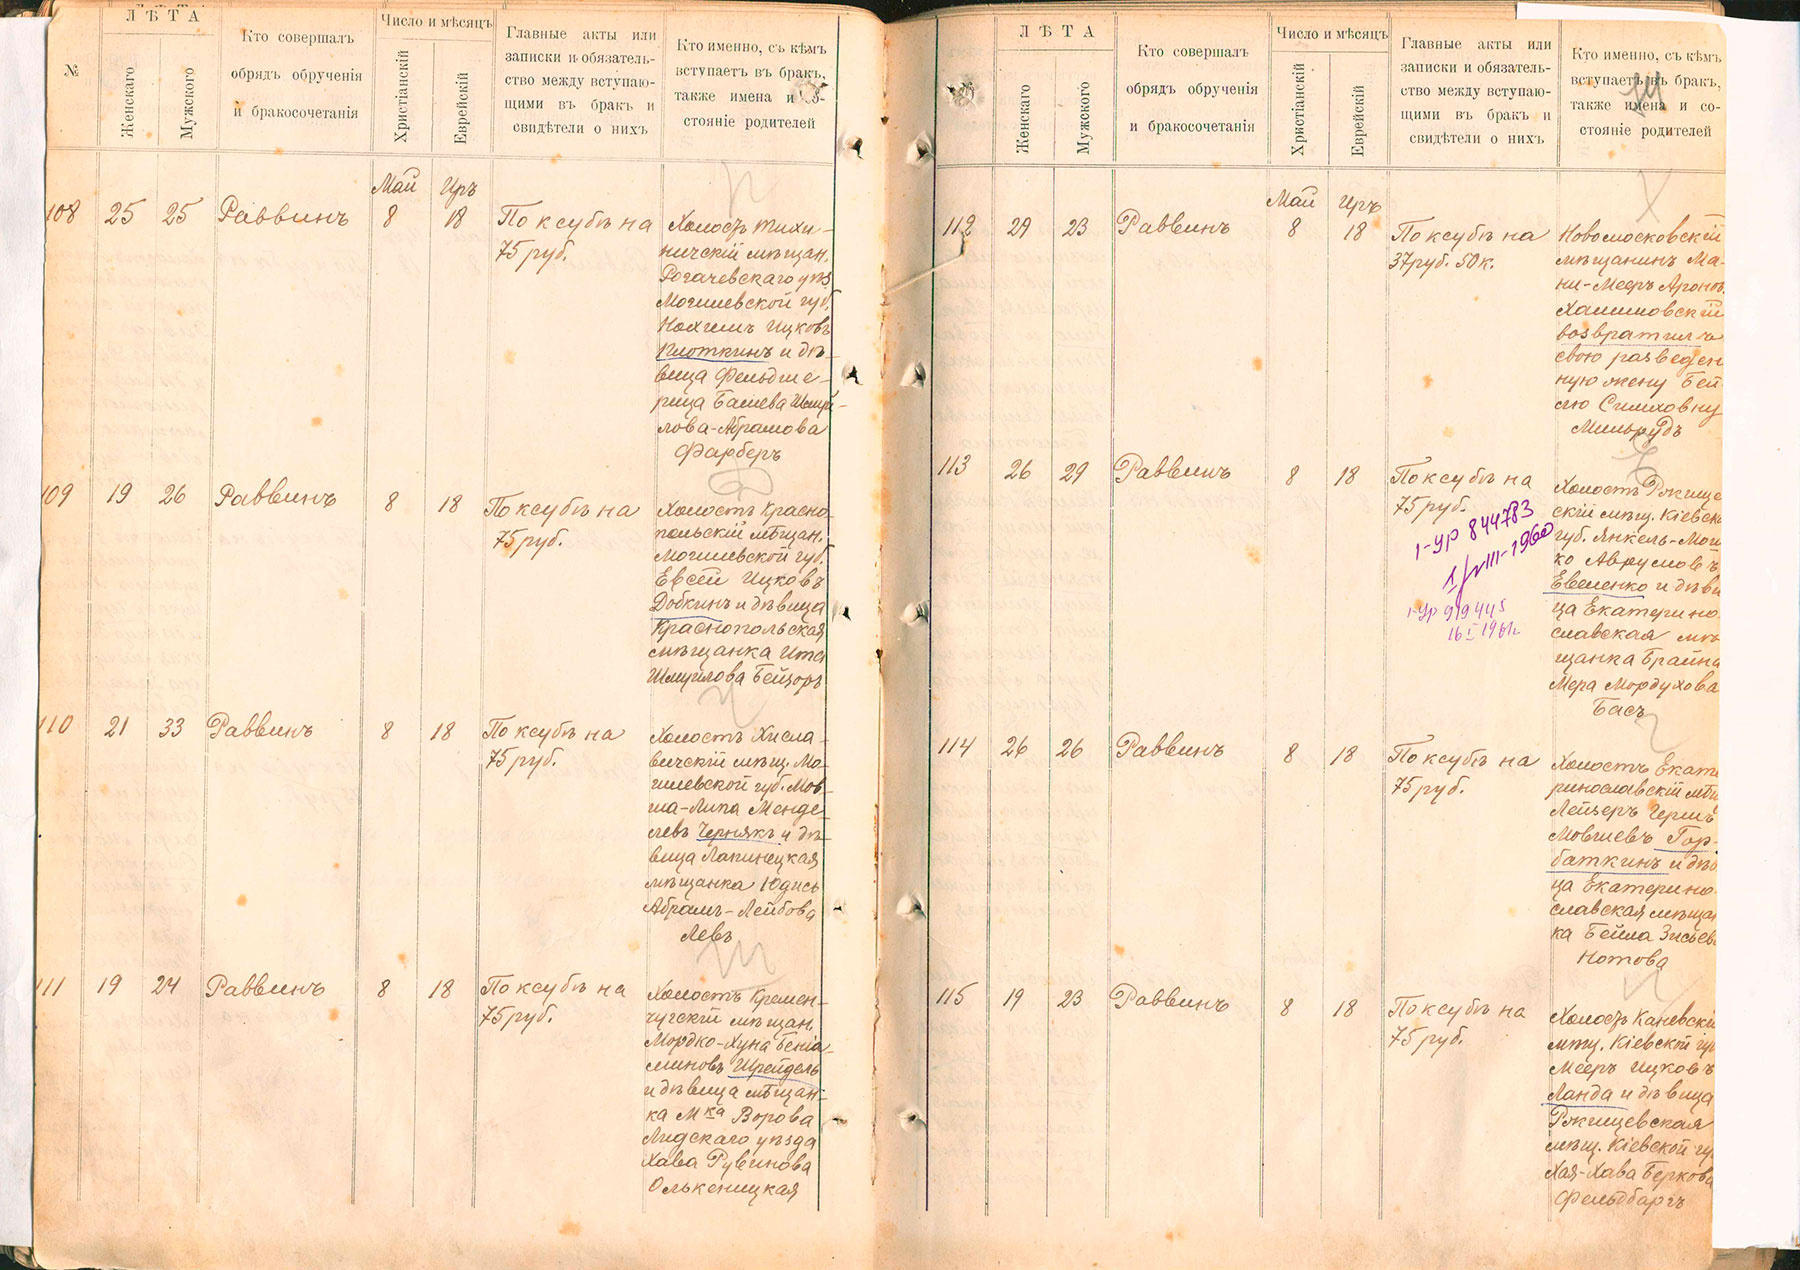 ЛѢТА
№
Женскаго
Мужского
Кто совершалъ
обрядъ обрученія
и бракосочетанія
Число и мѣсяцъ
Христіанскій
Еврейскій
Главные акты или
записки и обязатель-
ство между вступаю-
щими въ бракъ и
свидѣтели о нихъ
Кто именно, съ кѣмъ
вступаетъ въ бракъ,
также имена и со-
стояніе родителей
Май Иръ
108 25 25 Раввинъ 8 18 По ксубѣ на
75 руб.
Холостъ Тихи-
ничскій мѣщан.
Рогачевскаго уѣз
Могилевской губ.
Нохимъ Ицковъ
Плоткинъ и дѣ-
вица Фельдше-
рица Башева Шмуй-
лова-Абрамова
Фарберъ
109 19 26 Раввинъ 8 18 По ксубѣ на
75 руб.
Холостъ Красно-
польскій мѣщан.
Могилевской губ.
Евсей Ицковъ
Добкинъ и дѣвица
Краснопольская
мѣщанка Ита
Шмуилова Бейзоръ
110 21 33 Раввинъ 8 18 По ксубѣ на
75 руб.
Холостъ Хисла-
вичскій мѣщ. Мо-
гилевской губ. Мов-
ша-Липа Менде-
левъ Чернякъ и дѣ-
вица Лапинецкая
мѣщанка Юдись
Абрамъ-Лейбова
Левъ
111 19 24 Раввинъ 8 18 По ксубѣ на
75 руб.
Холостъ Кремен-
чугскій мѣщан.
Мордко-Хуна Беніа-
миновъ Шрейдель
и дѣвица мѣщан-
ка Мка Ворова
Лидскаго уѣзда
Хава Рувинова
Олькеницкая
ЛѢТА
Женскаго
Мужского
Кто совершалъ
обрядъ обрученія
и бракосочетанія
Число и мѣсяцъ
Христіанскій
Еврейскій
Главные акты или
записки и обязатель-
ство между вступаю-
щими въ бракъ и
свидѣтели о нихъ
Кто именно, съ кѣмъ
вступаетъ въ бракъ,
также имена и со-
стояніе родителей
Май Иръ
112 29 23 Раввинъ 8 18 По ксубѣ на
37 руб. 50 к.
Новомосковскій
мѣщанинъ Ма-
ни-Мееръ Ароновъ
Хаимовскій
возвратилъ
свою разведен
ную жену Бей-
лю Симховну
Мильрудъ
113 26 29 Раввинъ 8 18 По ксубѣ на
75 руб.
1-УР 844783
1/VIII-1960
1-УР 919445
16 I 1961г.
Холостъ Ржище
скій мѣщ. Кіевск
губ. Янкель-Мош
ко Аврумовъ
Евеленко и дѣви
ца Екатерино-
славская мѣ
щанка Брайна
Мера Мордухова
Басъ
114 26 26 Раввинъ 8 18 По ксубѣ на
75 руб.
Холостъ Екате
ринославскій мѣщ
Лейзеръ Гершъ
Мовшевъ Гор-
баткинъ и дѣв
ца Екатерино-
славская мѣщан
ка Бейла Зисьев
Нотова
115 19 23 Раввинъ 8 18 По ксубѣ на
75 руб.
Холостъ Каневскій
мѣщ. Кіевской гу
Мееръ Ицковъ
Ланда и дѣвица
Ржищевская
мѣщ. Кіевской гу
Хая-Хава Беркова
Фельдбаргъ